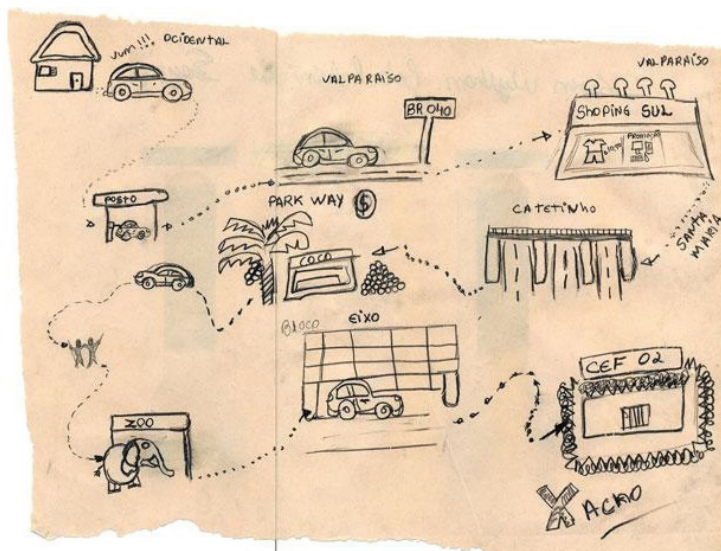 VUM!!! OCIDENTAL
VALPARAÍSO
BR 040
VALPARAÍSO
SHOPING SUL
PROMOÇÃO
POSTO
PARK WAY $
COCO
CATETINHO
SANTA MARIA
BLOCO
EIXO
ZOO
CEF 02